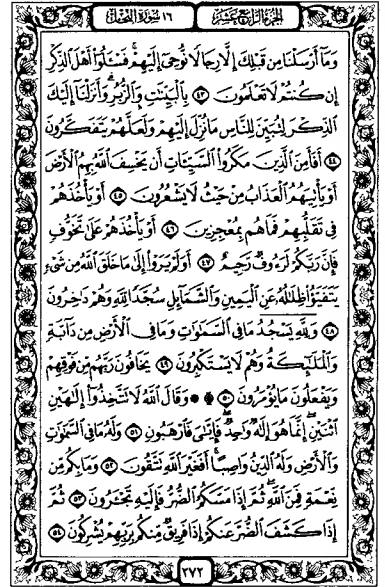 الجزء الرابع عشر
١٦ سورة النحل
وَمَآ أَرْسَلْنَا مِن قَبْلِكَ إِلَّا رِجَالًا نُّوحِىٓ إِلَيْهِمْ ۚ فَسْـَٔلُوٓا۟ أَهْلَ ٱلذِّكْرِ
إِن كُنتُمْ لَا تَعْلَمُونَ ٤٣ بِٱلْبَيِّنَـٰتِ وَٱلزُّبُرِ ۗ وَأَنزَلْنَآ إِلَيْكَ
ٱلذِّكْرَ لِتُبَيِّنَ لِلنَّاسِ مَا نُزِّلَ إِلَيْهِمْ وَلَعَلَّهُمْ يَتَفَكَّرُونَ
٤٤ أَفَأَمِنَ ٱلَّذِينَ مَكَرُوا۟ ٱلسَّيِّـَٔاتِ أَن يَخْسِفَ ٱللَّهُ بِهِمُ ٱلْأَرْضَ
أَوْ يَأْتِيَهُمُ ٱلْعَذَابُ مِنْ حَيْثُ لَا يَشْعُرُونَ ٤٥ أَوْ يَأْخُذَهُمْ
فِى تَقَلُّبِهِمْ فَمَا هُم بِمُعْجِزِينَ ٤٦ أَوْ يَأْخُذَهُمْ عَلَىٰ تَخَوُّفٍ
فَإِنَّ رَبَّكُمْ لَرَءُوفٌ رَّحِيمٌ ٤٧ أَوَلَمْ يَرَوْا۟ إِلَىٰ مَا خَلَقَ ٱللَّهُ مِن شَىْءٍ
يَتَفَيَّؤُا۟ ظِلَـٰلُهُۥ عَنِ ٱلْيَمِينِ وَٱلشَّمَآئِلِ سُجَّدًا لِّلَّهِ وَهُمْ دَٰخِرُونَ
٤٨ وَلِلَّهِ يَسْجُدُ مَا فِى ٱلسَّمَـٰوَٰتِ وَمَا فِى ٱلْأَرْضِ مِن دَآبَّةٍ
وَٱلْمَلَـٰٓئِكَةُ وَهُمْ لَا يَسْتَكْبِرُونَ ٤٩ يَخَافُونَ رَبَّهُم مِّن فَوْقِهِمْ
وَيَفْعَلُونَ مَا يُؤْمَرُونَ ٥٠ ۞ وَقَالَ ٱللَّهُ لَا تَتَّخِذُوٓا۟ إِلَـٰهَيْنِ
ٱثْنَيْنِ ۖ إِنَّمَا هُوَ إِلَـٰهٌ وَٰحِدٌ ۖ فَإِيَّـٰىَ فَٱرْهَبُونِ ٥١ وَلَهُۥ مَا فِى ٱلسَّمَـٰوَٰتِ
وَٱلْأَرْضِ وَلَهُ ٱلدِّينُ وَاصِبًا ۚ أَفَغَيْرَ ٱللَّهِ تَتَّقُونَ ٥٢ وَمَا بِكُم مِّن
نِّعْمَةٍ فَمِنَ ٱللَّهِ ۖ ثُمَّ إِذَا مَسَّكُمُ ٱلضُّرُّ فَإِلَيْهِ تَجْـَٔرُونَ ٥٣ ثُمَّ
إِذَا كَشَفَ ٱلضُّرَّ عَنكُمْ إِذَا فَرِيقٌ مِّنكُم بِرَبِّهِمْ يُشْرِكُونَ ٥٤
٢٧٢